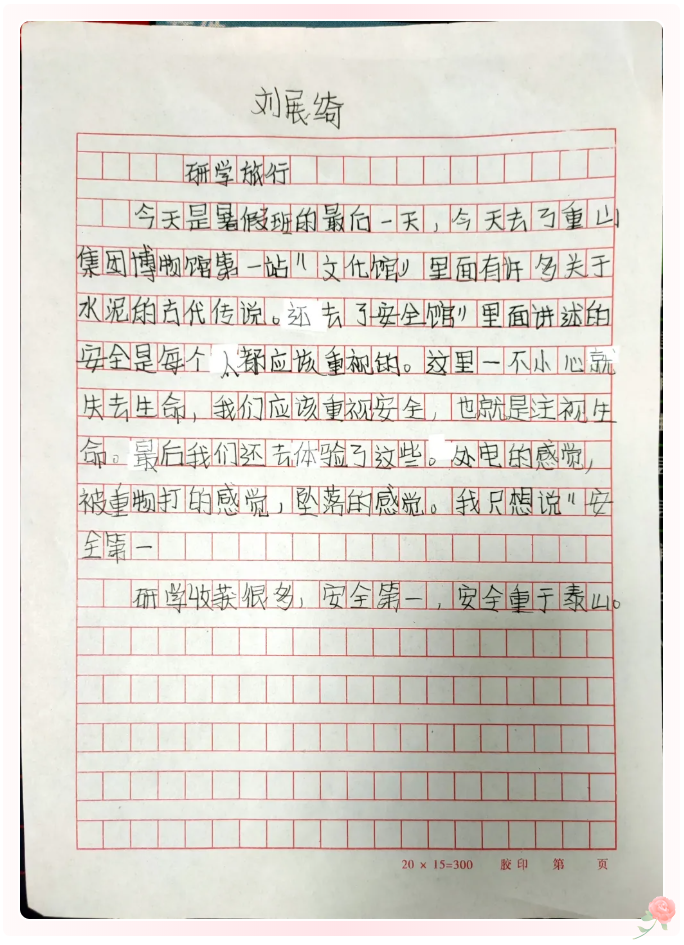 刘展绮
研学旅行
今天是暑假班的最后一天，今天去了重山
集团博物馆第一站“文化馆”里面有许多关于
水泥的古代传说。还去了安全馆”里面讲述的
安全是每个人都应该重视的。这里一不小心就
失去生命，我们应该重视安全，也就是注视生
命。最后我们还去体验了这些。处电的感觉，
被重物打的感觉，坠落的感觉。我只想说“安
全第一
研学收获很多，安全第一，安全重于泰山。
20 × 15=300 胶印 第 页